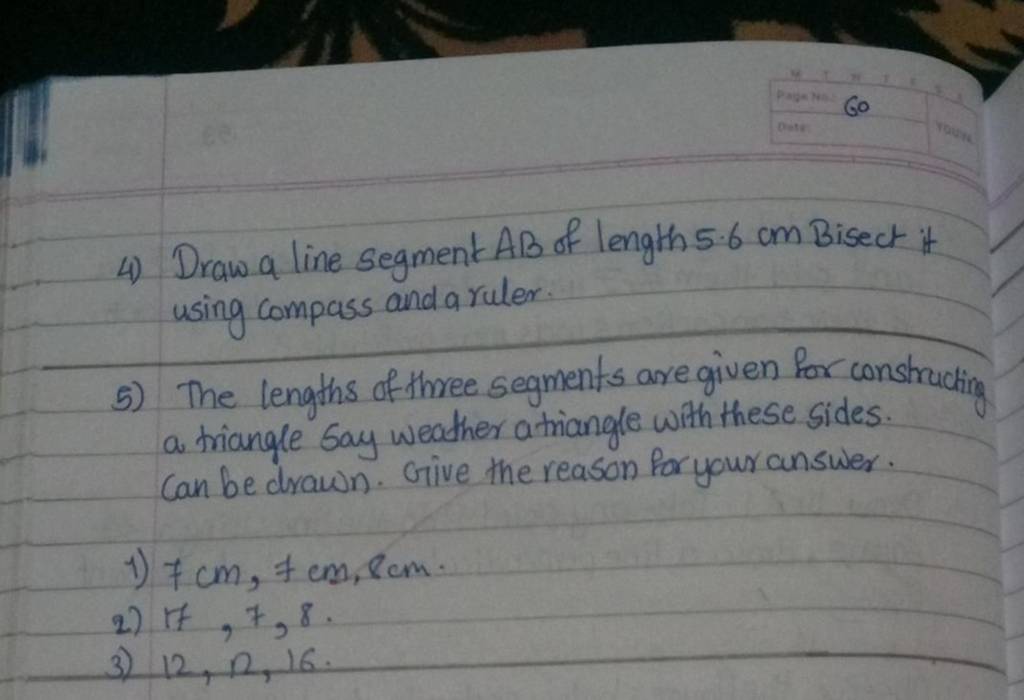 M T W T F S S
Page No.: 60
Date:
YOUVA
4) Draw a line segment AB of length 5.6 cm Bisect it
using compass and a ruler.
5) The lengths of three segments are given for constructing
a triangle Say weather a triangle with these sides.
Can be drawn. Give the reason for your answer.
1) 7 cm, 7 cm, 8cm.
2) 17, 7, 8.
3) 12, 12, 16.